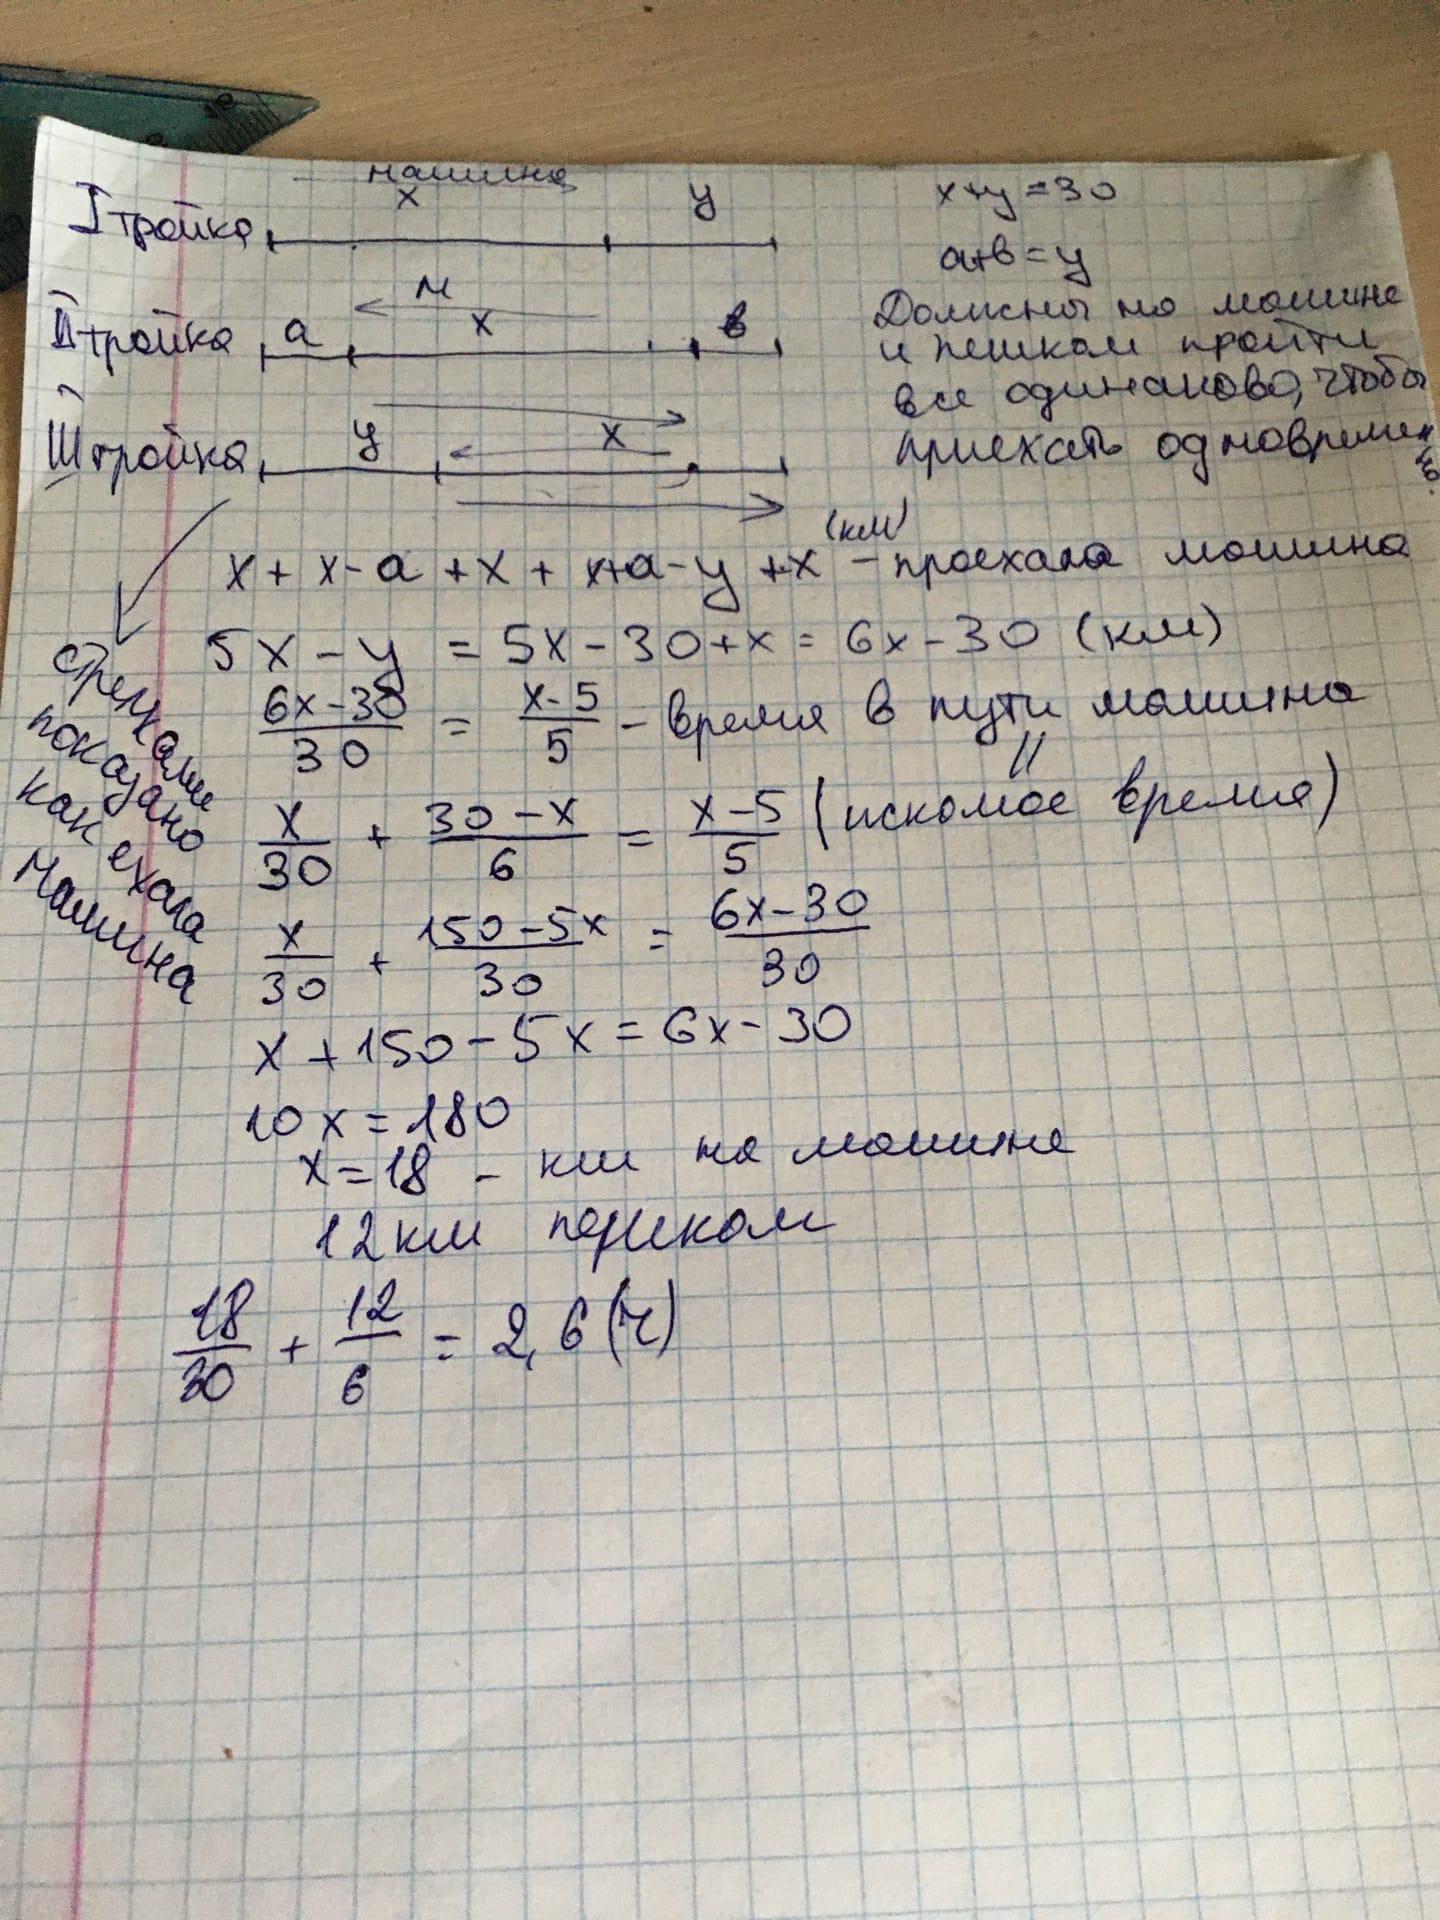 машина
I тройка x y x+y=30
a+в=y
М
II тройка a x в
Должны на машине
и пешком пройти
все одинаково, чтобы
приехать одновременно.
III тройка y x
(км)
x + x-a +x + x+a-y +x – проехала машина
5x-y = 5x-30+x= 6x-30 (км)
6x-30/30 = x-5/5 – время в пути машина
=
x/30 + 30-x/6 = x-5/5 (искомое время)
x/30 + 150-5x/30 = 6x-30/30
x+150-5x=6x-30
10x=180
x=18 – км на машине
12км пешком
18/30 + 12/6 = 2,6 (ч)
стрелками
показано
как ехала
машина